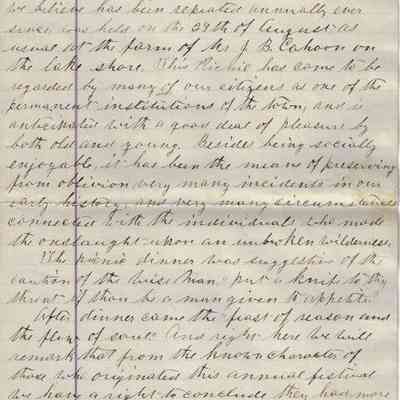 we believe has been repeated annually ever
since was held on the 29th of August as
usual at the farm of Mr J. B. Cahoon on
the lake shore. This Picnic has come to be
regarded by many of our citizens as one of the
permanent institutions of the town, and is
anticipated with a good deal of pleasure by
both old and young. Besides being socially
enjoyable, it has been the means of preserving
from oblivion very many incidents in our
early history, and very many circumstances
connected with the individuals who made
the onslaught upon an unbroken wilderness.
The picnic dinner was suggestive of the
caution of the Wise Man: "put a knife to thy
throat if thou be a man given to appetite"
After dinner came the feast of reason and
the flow of soul. And right here we will
remark that from the known character of
those who originated this annual festival
we have a right to conclude they had more